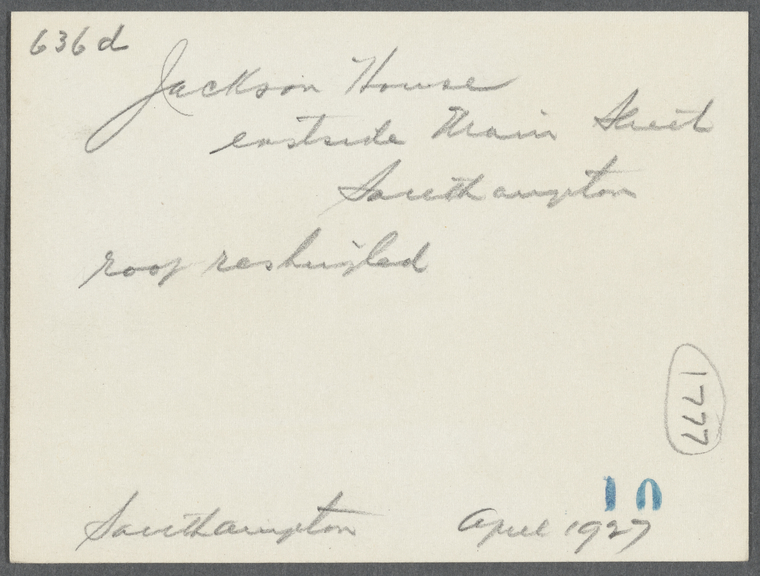 636d
Jackson House
eastside Main Street
Southampton
roof reshingled
1777
10
Southampton April 1927